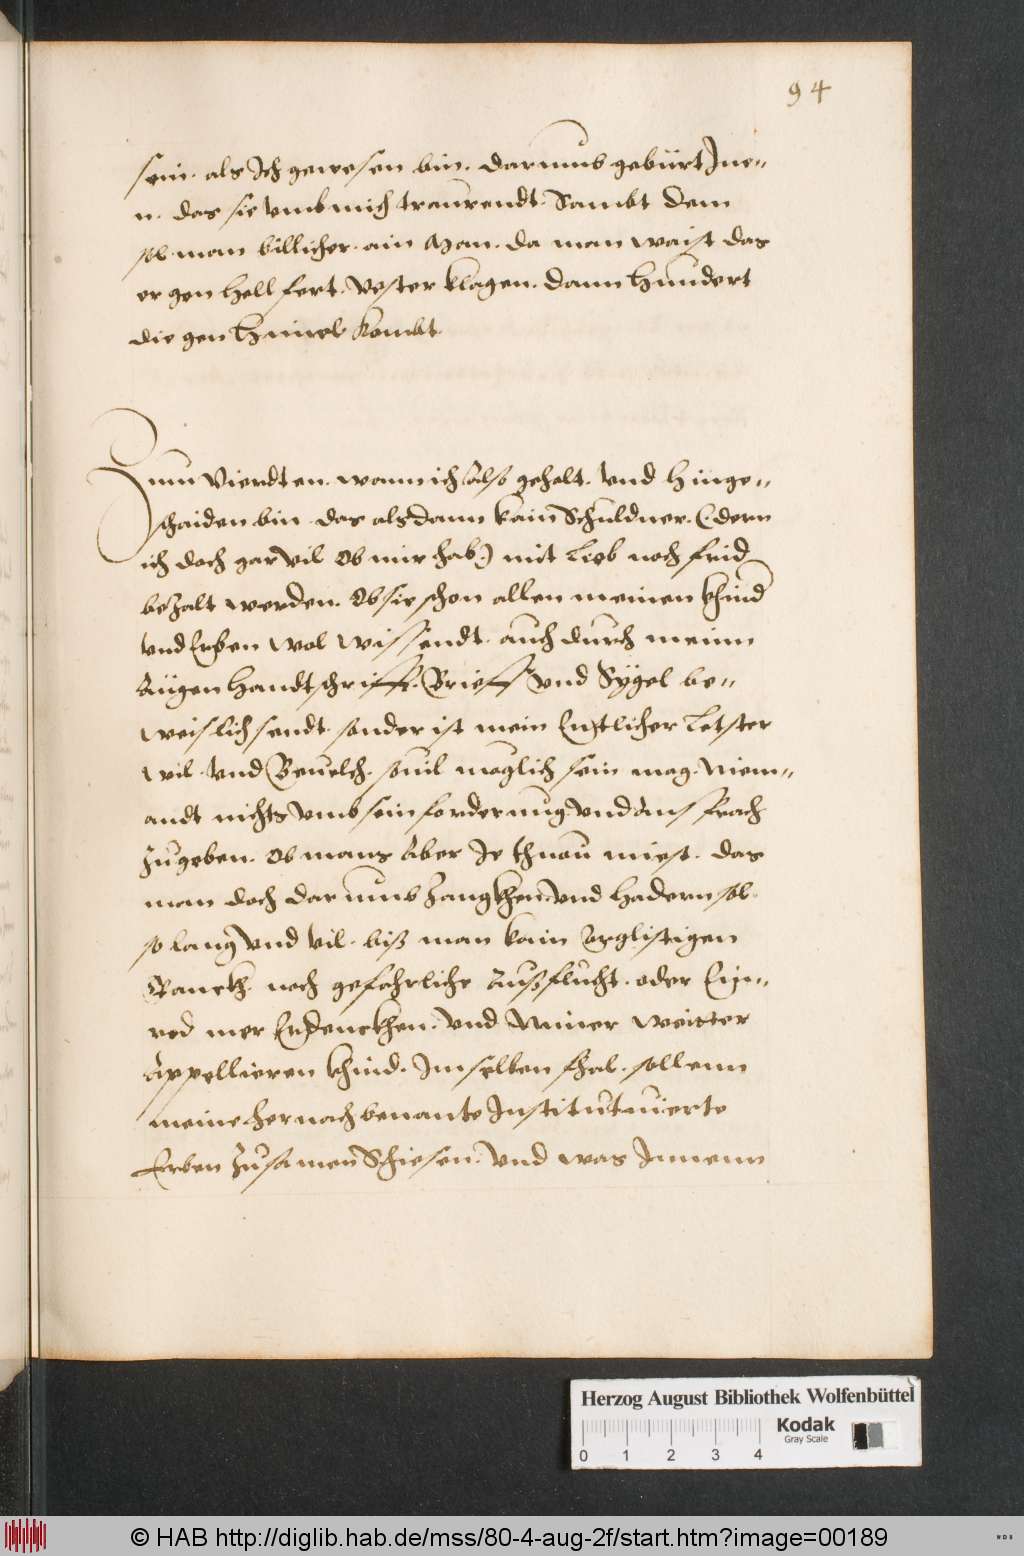 94
sein. als Ich gewesen bin. darumb gebürt Ine„
n. das sie umb mich traurendt. Sambt dem
sol man billicher. ain Man. da man waist das
er gen hell fert. Vester klagen. dann hundert
die gen himel kombt.
Zum Vierdten. wann ich Also gehelt. Und hinge„
schaiden bin. das alsdann kain Schuldner. (: dern
ich doch gar vil Ob mir hab:) mit Lieb noch frid
bezalt werden. Ob sie schon allen meinen khind
und Erben wol wissendt. auch durch meinn
Aügen handtschrifft. Brieff und Sygel be„
weislich sendt. sonder ist mein Entlicher Letster
wil. und Beuelch. souil muglich sein mag. Niem„
andt nichts umb sein forderung und Ansprach
zu geben. Ob mans Aber Je thuon miest. das
man doch darumb zangkhen. und hadern sol.
so lang und vil. biß man kain Arglistigen
Ranckh. noch gefahrliche Außflucht. oder Ein„
red mer Erdenckhen. und Nimer weitter
Appellieren khind. Im selben fhal. sollenn
meine hernach benante Instituuierte
Erben zusamen Schiesen. und was Innenn
Herzog August Bibliothek Wolfenbüttel
Kodak
Gray Scale
0 1 2 3 4
© HAB http://diglib.hab.de/mss/80-4-aug-2f/start.htm?image=00189